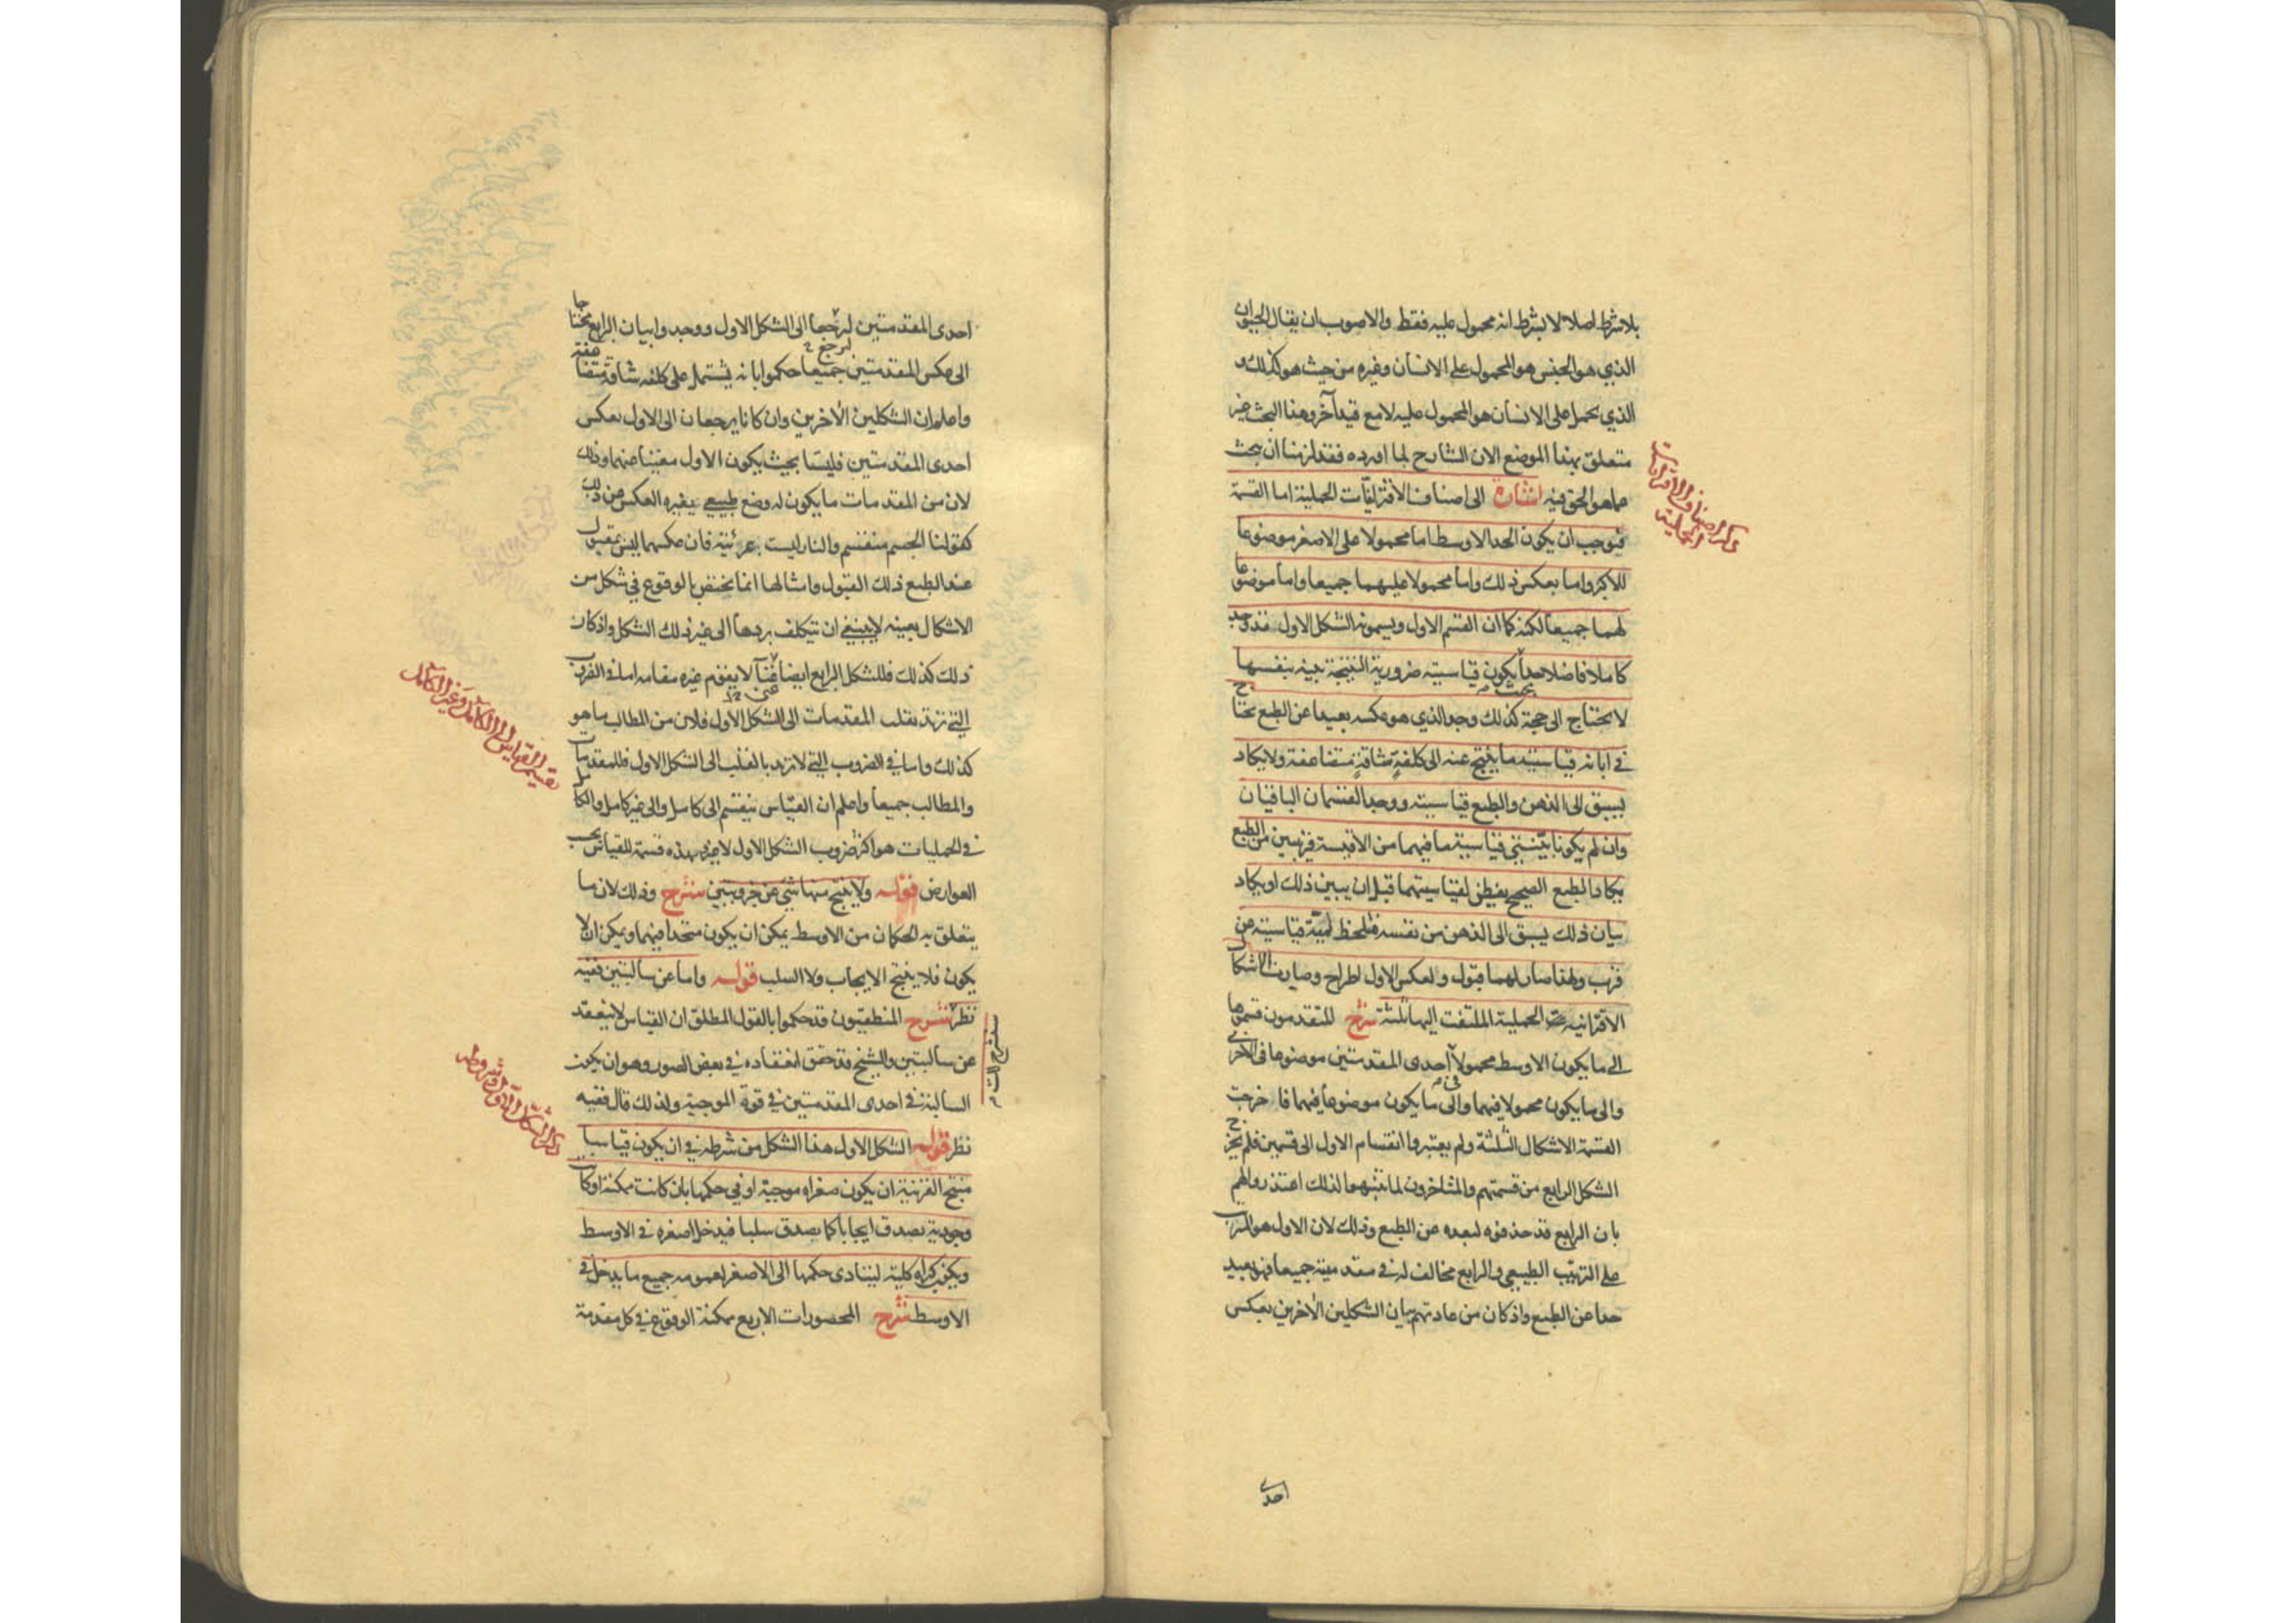 بلاشرط اصلا لا بشرط انه محمول عليه فقط والاصوب ان يقال الحيوان
الذي هو الجنس هو المحمول على الانسان وغيره من حيث هو كذلك و
الذي يحمل على الانسان هو المحمول عليه لا مع قيد آخر وهذا البحث غير
متعلق بهذا الموضع الا ان الشارح لما اورده فقد لزمنا ان نبحث
عما هو الحق فيه اشارة الى اصناف الاقترانيات الحملية اما القسمة
فتوجب ان يكون الحد الاوسط اما محمولا على الاصغر موضوعا
للاكبر واما بعكس ذلك واما محمولا عليهما جميعا واما موضوعا
لهما جميعا لكنه كما ان القسم الاول ويسمونه الشكل الاول قد وجد
كاملا فاضلا جدا بحيث يكون قياسيته ضرورية النتيجة بينة بنفسها
لا يحتاج الى حجة كذلك وجد الذي هو عكسه بعيدا عن الطبع يحتاج
في ابانة قياسيته ما ينتج عنه الى كلفة شاقة متضاعفة ولا يكاد
يسبق الى الذهن والطبع قياسيته ووجد القسمان الباقيان
وان لم يكونا بينتي قياسية ما فيهما من الاقيسة قريبين من الطبع
يكاد الطبع الصحيح يفطن لقياسيتهما قبل ان يبين ذلك او يكاد
بيان ذلك يسبق الى الذهن من نفسه فتلحظ لمية قياسيته عن
قرب ولهذا صار لهما قبول ولعكس الاول اطراح وصارت الاشكال
الاقترانية الحملية الملتفت اليها ثلثة شرح المتقدمون قسموها
الى ما يكون الاوسط محمولا في احدى المقدمتين موضوعا في الاخرى
والى ما يكون محمولا فيهما والى ما يكون موضوعا فيهما فاخرجت
القسمة الاشكال الثلثة ولم يعتبروا انقسام الاول الى قسمين فلم يخرج
الشكل الرابع من قسمتهم والمتاخرون لما تنبهوا لذلك اعتذروا لهم
بان الرابع قد حذفوه لبعده عن الطبع وذلك لان الاول هو المرتب
على الترتيب الطبيعي والرابع مخالف له في مقدمتيه جميعا فهو بعيد
جدا عن الطبع واذ كان من عادتهم بيان الشكلين الآخرين بعكس
احدى
ذكر اصناف الاقترانيات
الحملية
احدى المقدمتين ليرجعا الى الشكل الاول ووجدوا بيان الرابع محتاجا
الى عكس المقدمتين جميعا ليرجع حكموا بانه يشتمل على كلفة شاقة متضاعفة
واعلم ان الشكلين الآخرين وان كانا يرجعان الى الاول بعكس
احدى المقدمتين فليستا بحيث يكون الاول مغنيا عنهما وذلك
لان من المقدمات ما يكون له وضع طبيعي يغيره العكس عن ذلك
كقولنا الجسم منقسم والنار ليست بمرئية فان عكسهما ليس بمقبول
عند الطبع ذلك القبول وامثالها انما يختص بالوقوع في شكل من
الاشكال بعينه لا ينبغي ان يتكلف بردها الى غير ذلك الشكل واذ كان
ذلك كذلك فللشكل الرابع ايضا غناء لا يقوم غيره مقامه اما في الضرب
التي ترتد بقلب المقدمات الى الشكل الاول فلان من المطالب ما هو
كذلك واما في الضروب التي لا ترتد بالقلب الى الشكل الاول فللمقدمات
والمطالب جميعا واعلم ان القياس ينقسم الى كامل والى غير كامل والكامل
في الحمليات هو اكثر ضروب الشكل الاول لا غير وهذه قسمة للقياس بحسب
العوارض قوله ولا ينتج منها شيء عن جزويتين شرح وذلك لان ما
يتعلق به الحكمان من الاوسط يمكن ان يكون متحدا فيهما ويمكن ان لا
يكون فلا ينتج الايجاب ولا السلب قوله واما عن سالبتين ففيه
نظر شرح المنطقيون قد حكموا بالقول المطلق ان القياس لا ينعقد
عن سالبتين والشيخ قد حقق انعقاده في بعض الصور وهو ان يكون
السالبة في احدى المقدمتين في قوة الموجبة ولذلك قال ففيه
نظر قوله الشكل الاول هذا الشكل من شرطه في ان يكون قياسيا
منتج القرينة ان يكون صغراه موجبة او في حكمها بان كانت ممكنة او كان
وجودية يصدق ايجابا كما يصدق سلبا فيدخل اصغره في الاوسط
ويكون كبراه كلية ليتادى حكمها الى الاصغر لعمومه جميع ما يدخل في
الاوسط شرح المحصورات الاربع ممكنة الوقوع في كل مقدمة
تقسيم القياس الى الكامل وغير الكامل
ذكر الشكل الاول وشروطه